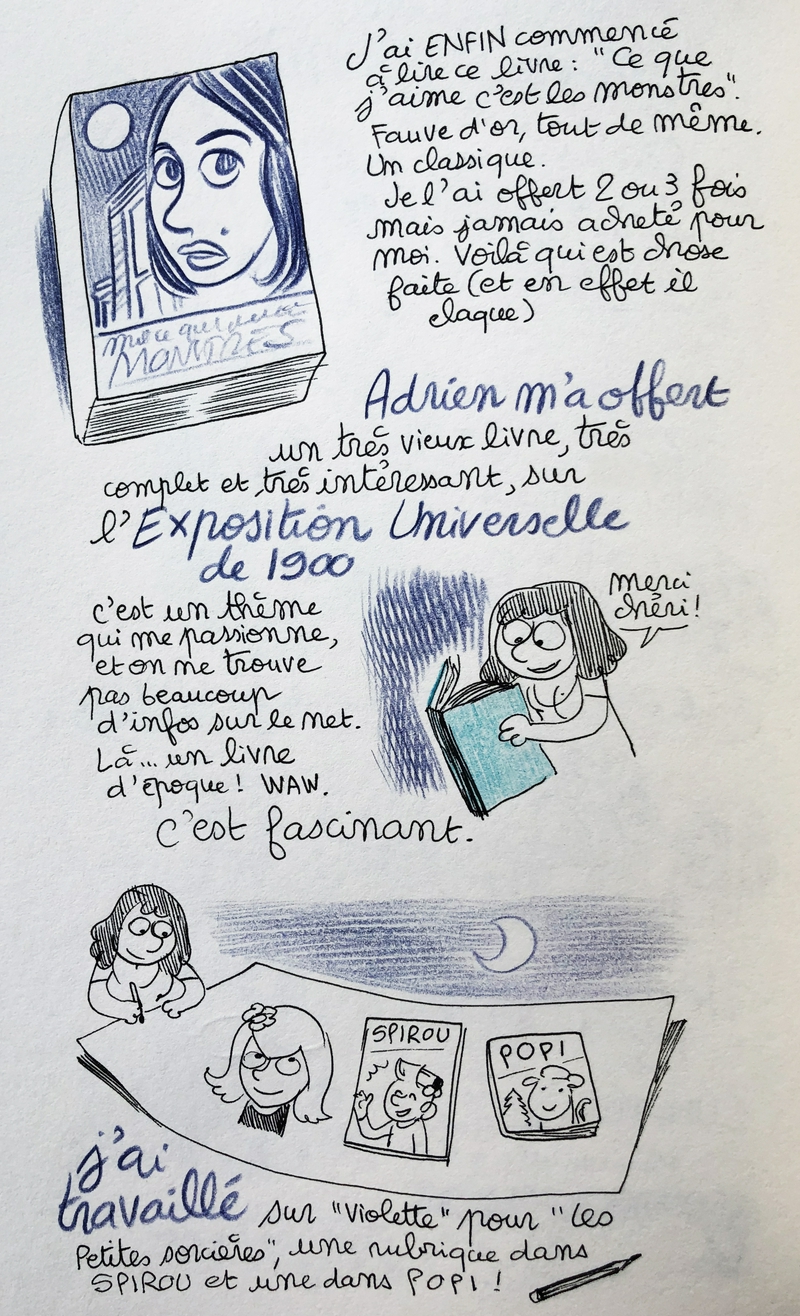 J'ai ENFIN commencé
à lire ce livre : "Ce que
j'aime c'est les monstres".
Fauve d'or, tout de même.
Un classique.
Je l'ai offert 2 ou 3 fois
mais jamais acheté pour
moi. Voilà qui est chose
faite (et en effet il
claque)
MONSTRES
Adrien m'a offert
un très vieux livre, très
complet et très intéressant, sur
l'Exposition Universelle
de 1900
c'est un thème
qui me passionne,
et on ne trouve
pas beaucoup
d'infos sur le net.
Là... un livre
d'époque ! WAW.
C'est fascinant.
merci
chéri !
SPIROU
POPI
j'ai
travaillé sur "Violette" pour "les
Petites sorcières", une rubrique dans
SPIROU et une dans POPI !